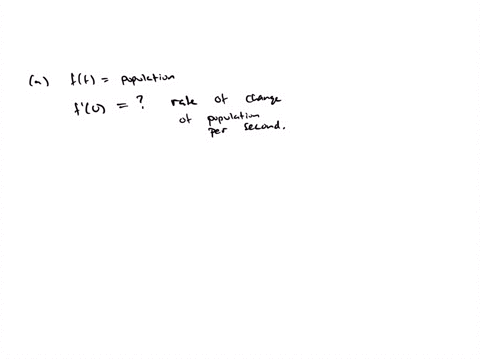 (a) f(t) = population
f'(0) = ? rate of change
of population
per second.